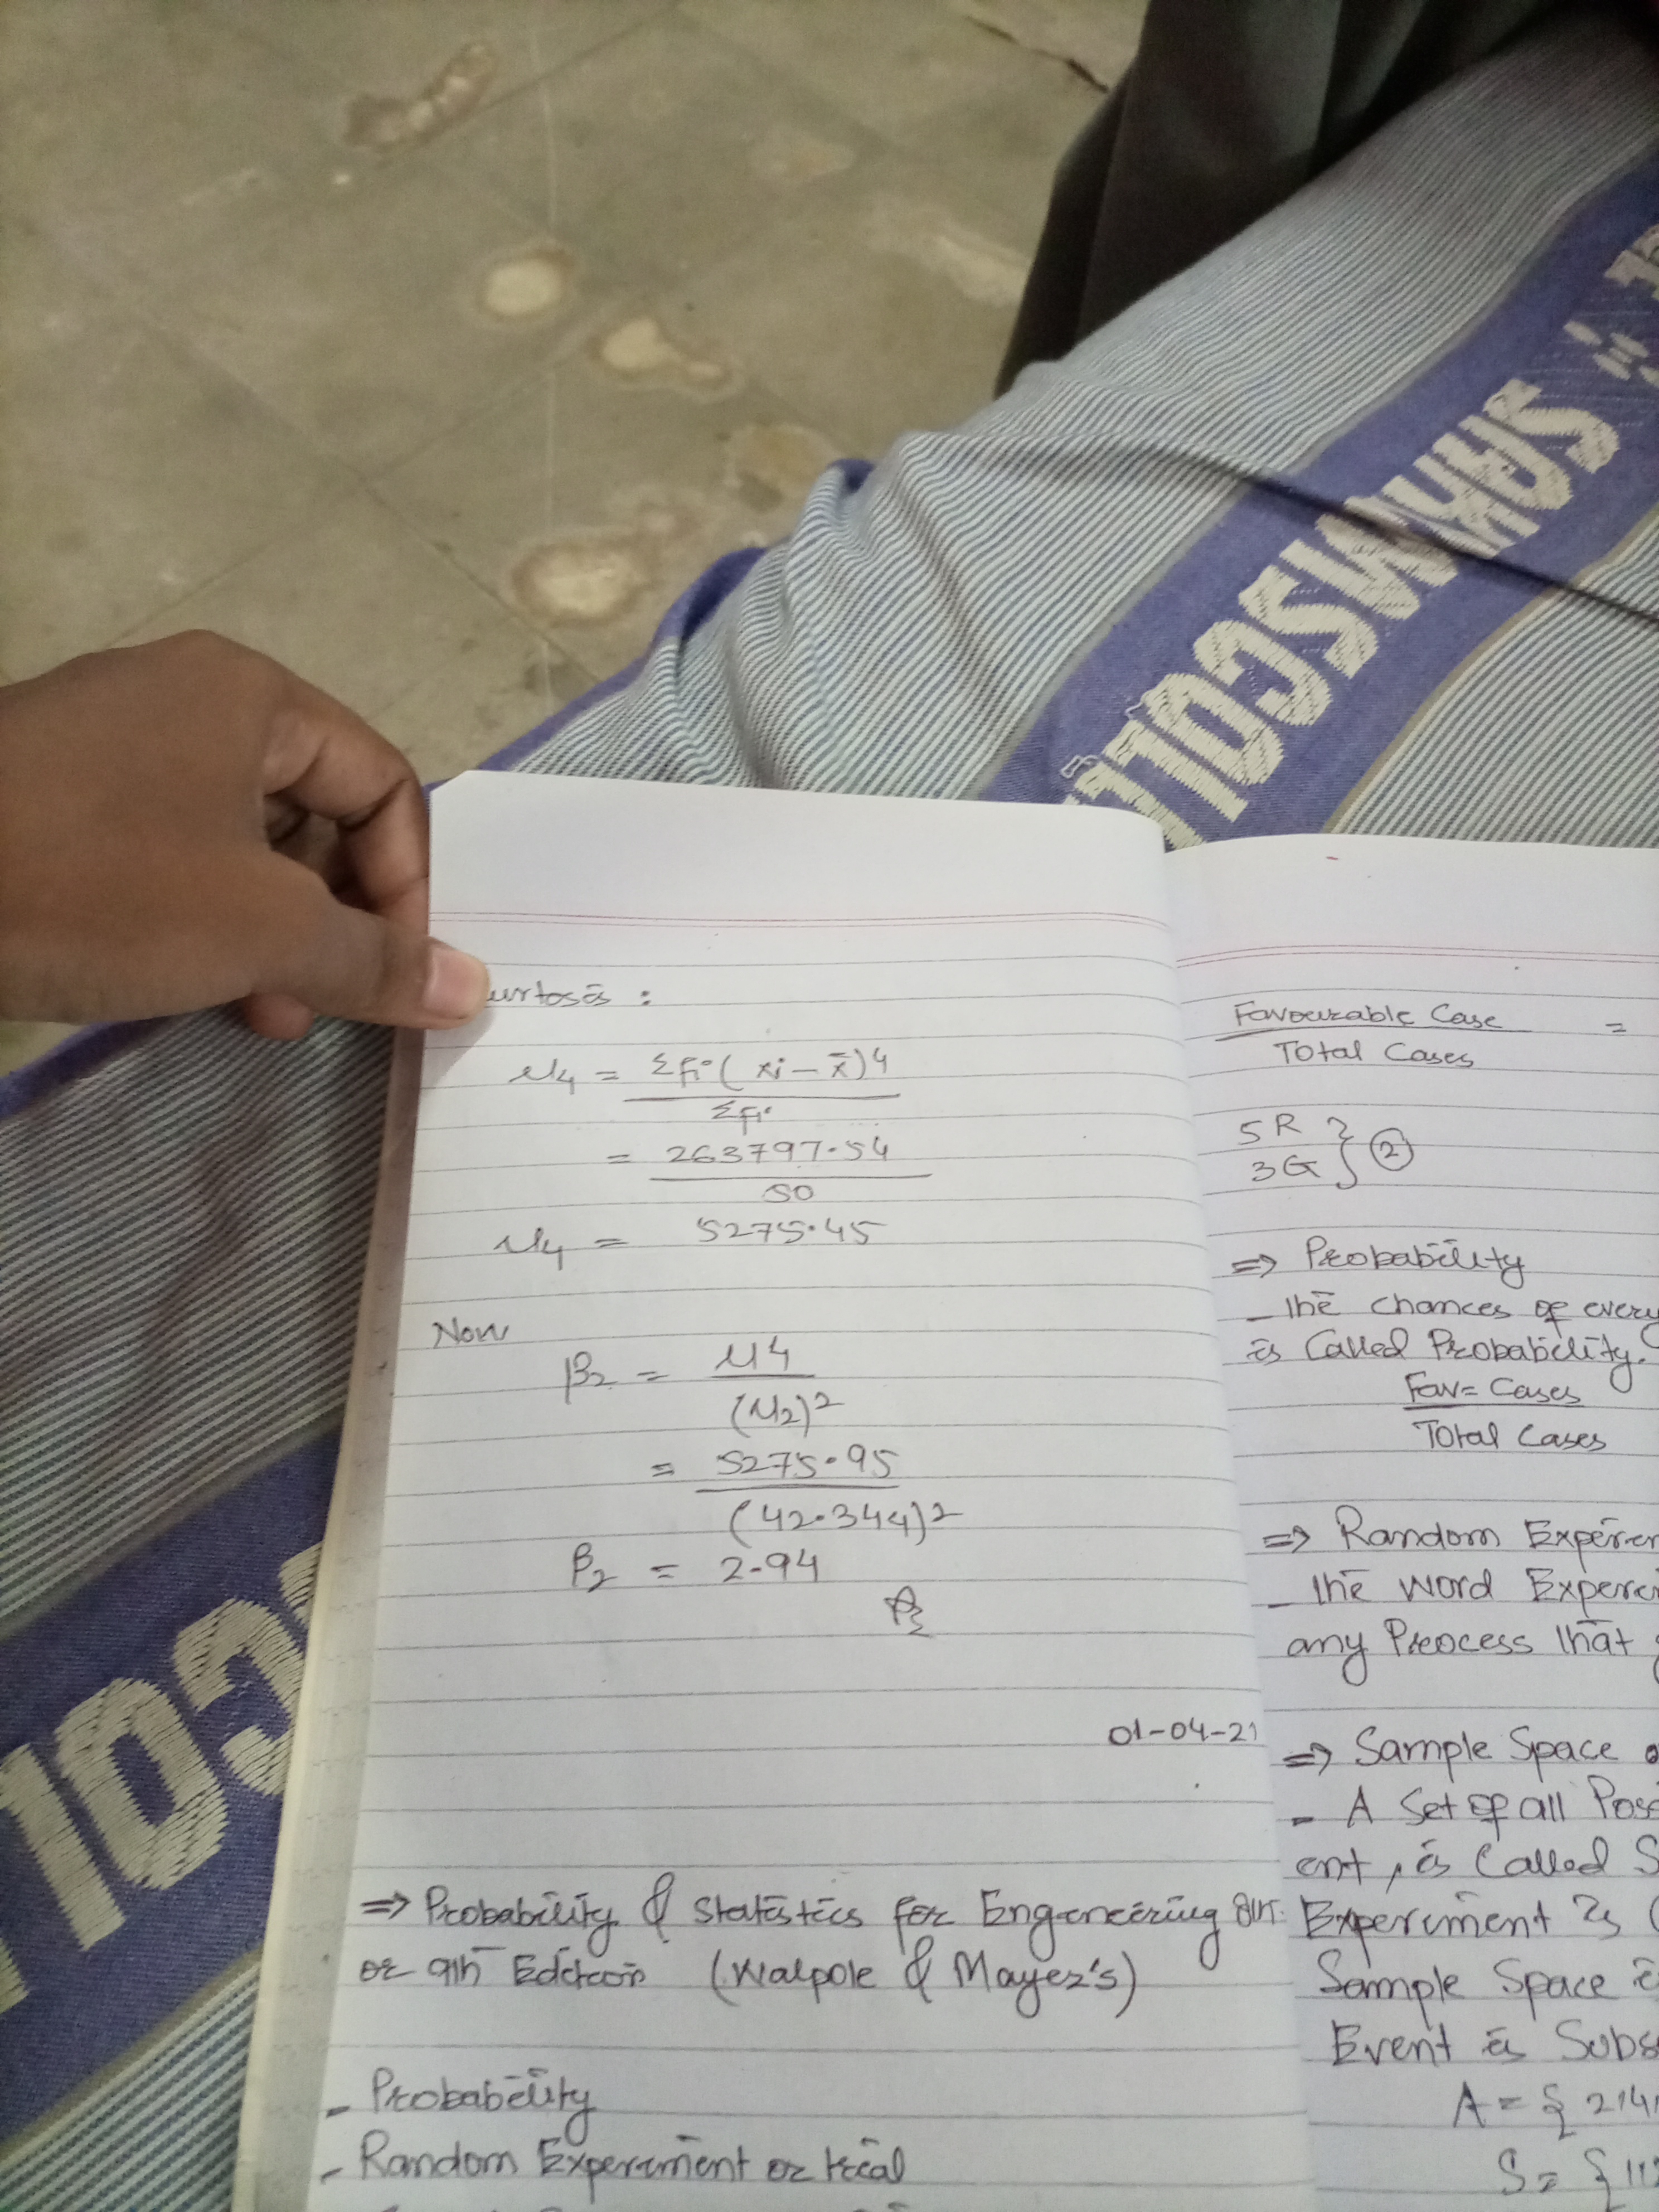 urtosis :
μ4 = Σfi(xi - x̄)4
Σfi
= 263797.54
50
μ4 = 5275.45
Now
β2 = μ4
(μ2)2
= 5275.95
(42.344)2
β2 = 2.94
01-04-21
⇒ Probability & Statistics for Engineering
or 9th Edition (Walpole & Mayer's)
- Probability
- Random Experiment or trial
Favourable Case =
Total Cases
5R
3G } 2
⇒ Probability
- The chances of every
is Called Probability.
Fav= Cases
Total Cases
⇒ Random Experi
- The word Experi
any Process that
⇒ Sample Space
- A Set of all Poss
ent, is Called S
Experiment is
Sample Space
Event is Subs
A = {
S = {
SARWMSCOLL
COLL